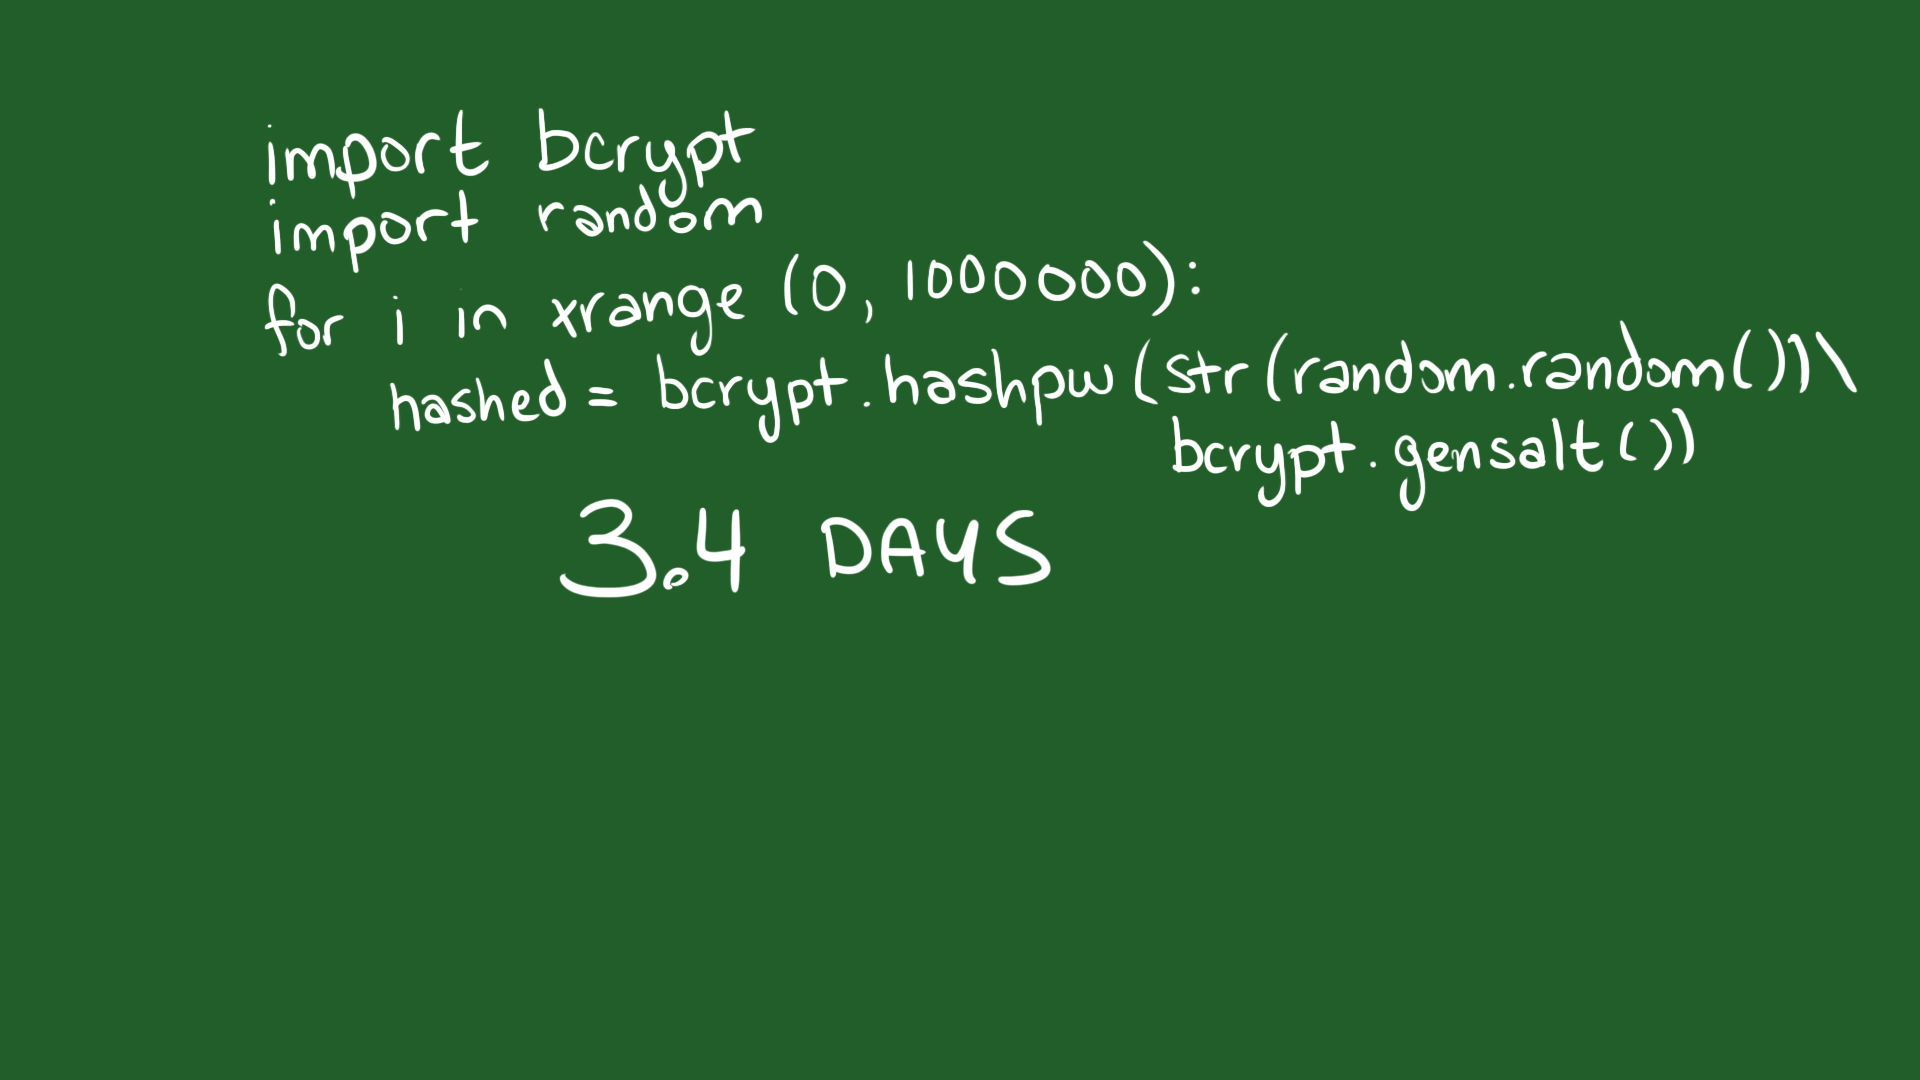 import bcrypt
import random
for i in xrange (0, 1000000):
hashed = bcrypt.hashpw (str (random.random())\
bcrypt.gensalt())
3.4 DAYS